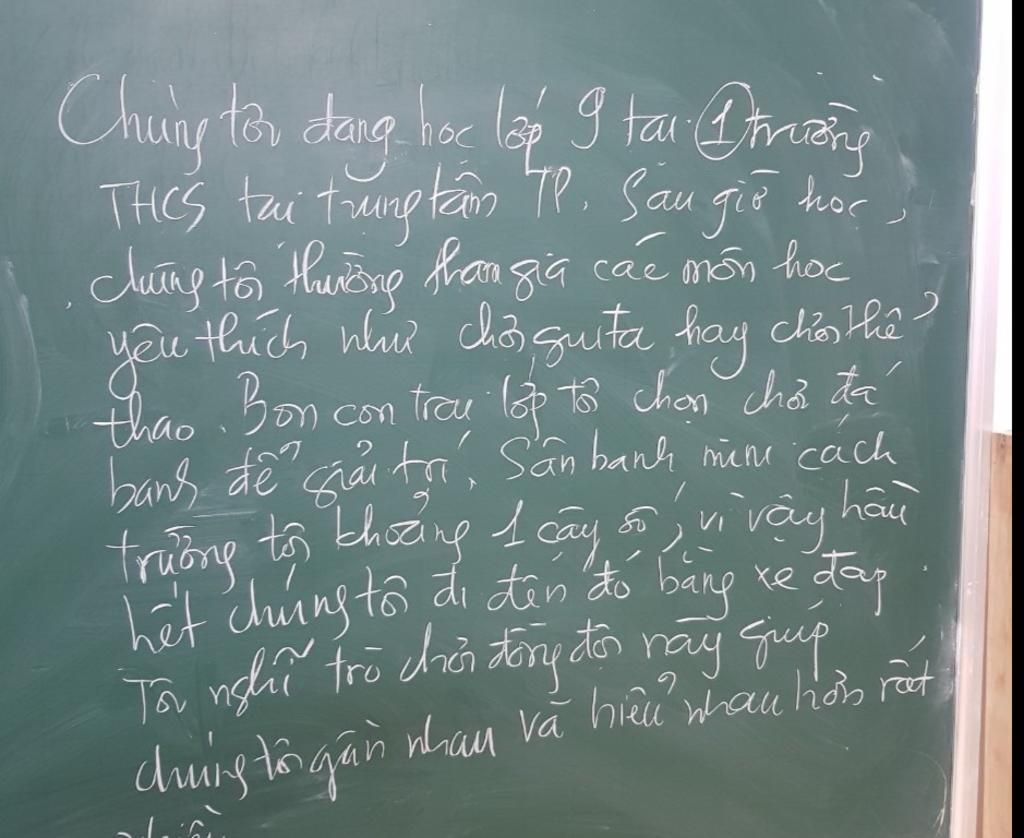 Chúng tôi đang học lớp 9 tại 1 trường
THCS tại trung tâm TP. Sau giờ học,
chúng tôi thường tham gia các môn học
yêu thích như chơi guita hay chơi thể
thao. Bọn con trai lớp tôi chọn chơi đá
banh để giải trí. Sân banh mini cách
trường tôi khoảng 1 cây số, vì vậy hầu
hết chúng tôi đi đến đó bằng xe đạp.
Tôi nghĩ trò chơi đồng đội này giúp
chúng tôi gần nhau và hiểu nhau hơn rất
nhiều